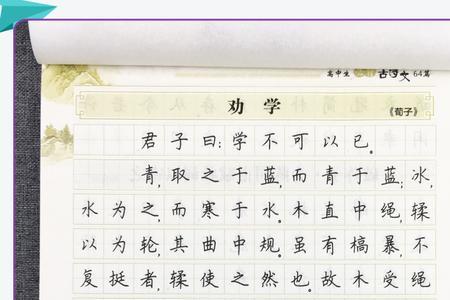 高中生 古诗文 64篇
劝学
《荀子》
君子曰：学不可以已。
青，取之于蓝，而青于蓝；冰，
水为之，而寒于水。木直中绳，𫐓
以为轮，其曲中规。虽有槁暴，不
复挺者，𫐓使之然也。故木受绳